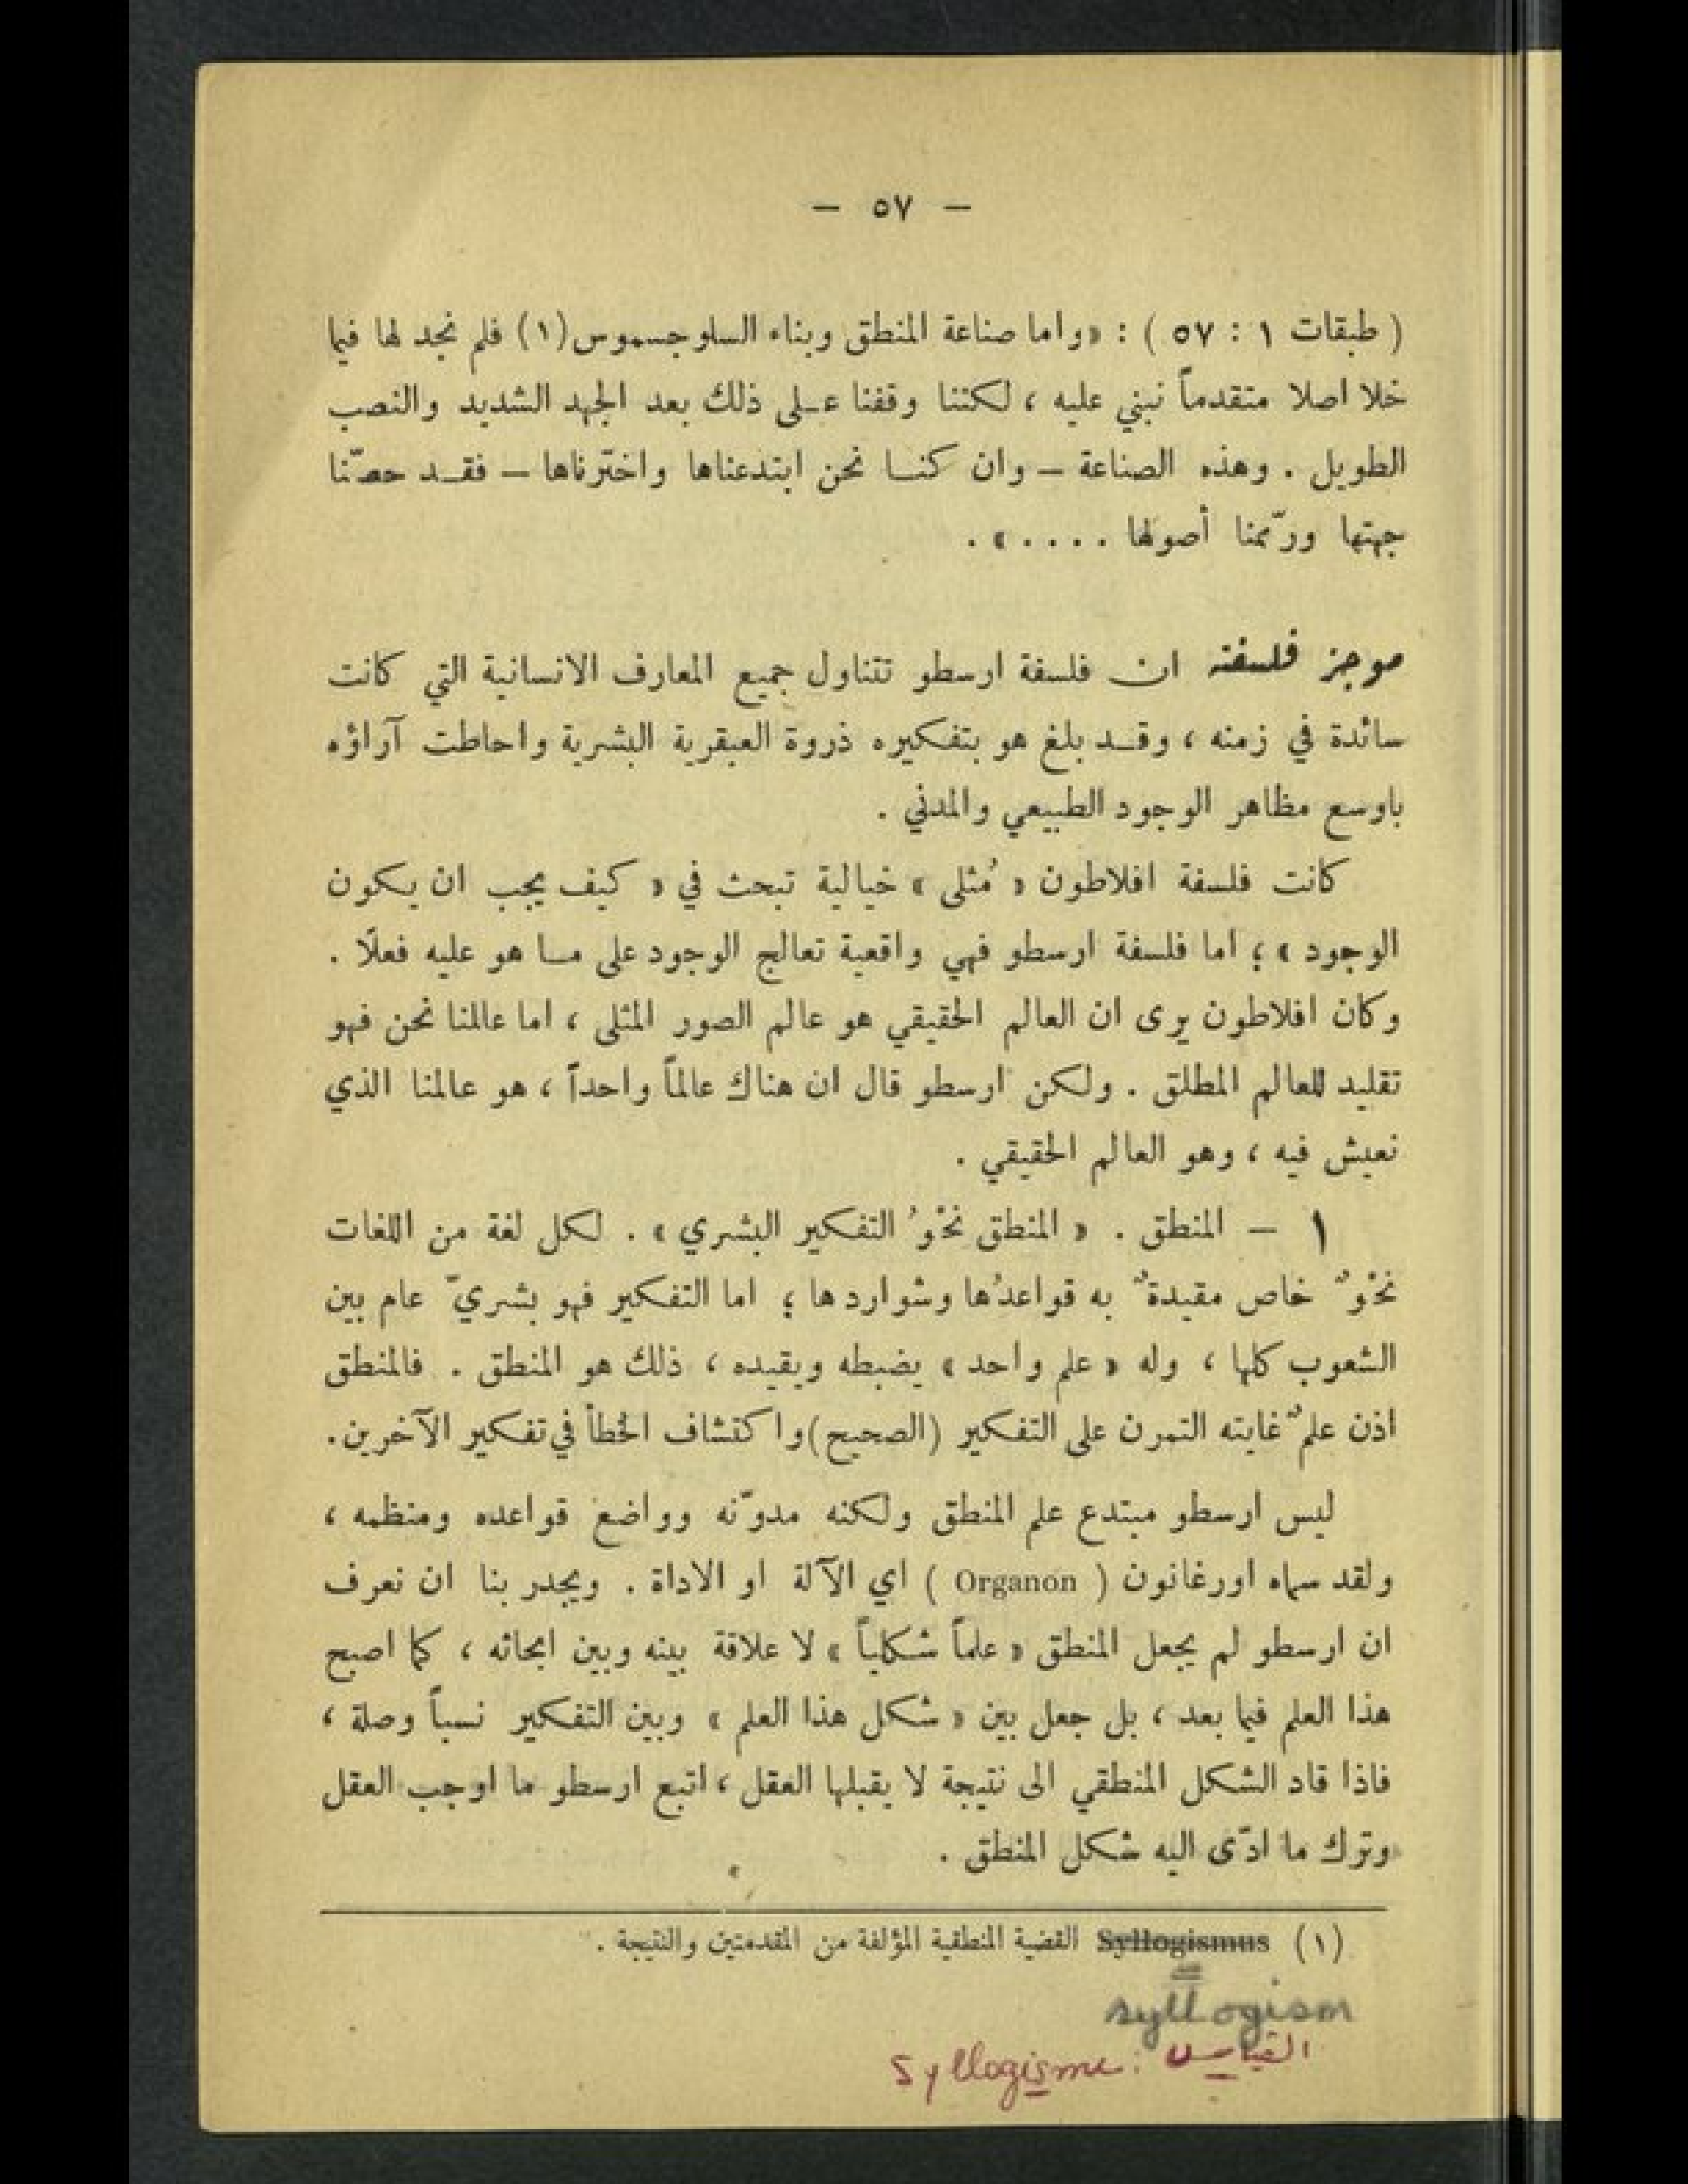 — ٥٧ —
( طبقات ١ : ٥٧ ) : «واما صناعة المنطق وبناء السلوجسموس(١) فلم نجد لها فيما
خلا اصلا متقدماً نبني عليه ، لكننا وقفنا على ذلك بعد الجهد الشديد والنصب
الطويل . وهذه الصناعة – وان كنا نحن ابتدعناها واخترناها – فقد حصّنا
جهتها ورمّمنا أصولها . . . . » .
موجز فلسفته ان فلسفة ارسطو تتناول جميع المعارف الانسانية التي كانت
سائدة في زمنه ، وقد بلغ هو بتفكيره ذروة العبقرية البشرية واحاطت آراؤه
باوسع مظاهر الوجود الطبيعي والمدني .
كانت فلسفة افلاطون « مُثلى » خيالية تبحث في « كيف يجب ان يكون
الوجود » ؛ اما فلسفة ارسطو فهي واقعية تعالج الوجود على ما هو عليه فعلًا .
وكان افلاطون يرى ان العالم الحقيقي هو عالم الصور المثلى ، اما عالمنا نحن فهو
تقليد للعالم المطلق . ولكن ارسطو قال ان هناك عالماً واحداً ، هو عالمنا الذي
نعيش فيه ، وهو العالم الحقيقي .
١ – المنطق . « المنطق نحْوُ التفكير البشري » . لكل لغة من اللغات
نحْوٌ خاص مقيدةٌ به قواعدُها وشواردها ؛ اما التفكير فهو بشريّ عام بين
الشعوب كلها ، وله « علم واحد » يضبطه ويقيده ، ذلك هو المنطق . فالمنطق
اذن علمٌ غايته التمرن على التفكير (الصحيح) واكتشاف الخطأ في تفكير الآخرين.
ليس ارسطو مبتدع علم المنطق ولكنه مدوّنه وواضع قواعده ومنظمه ،
ولقد سماه اورغانون ( Organon ) اي الآلة او الاداة . ويجدر بنا ان نعرف
ان ارسطو لم يجعل المنطق « علماً شكلياً » لا علاقة بينه وبين ابحاثه ، كما اصبح
هذا العلم فيما بعد ، بل جعل بين « شكل هذا العلم » وبين التفكير نسباً وصلة ،
فاذا قاد الشكل المنطقي الى نتيجة لا يقبلها العقل ، اتبع ارسطو ما اوجب العقل
وترك ما ادّى اليه شكل المنطق .
(١) Syllogismus القضية المنطقية المؤلفة من المقدمتين والنتيجة .
syllogism
القياس : Syllogisme